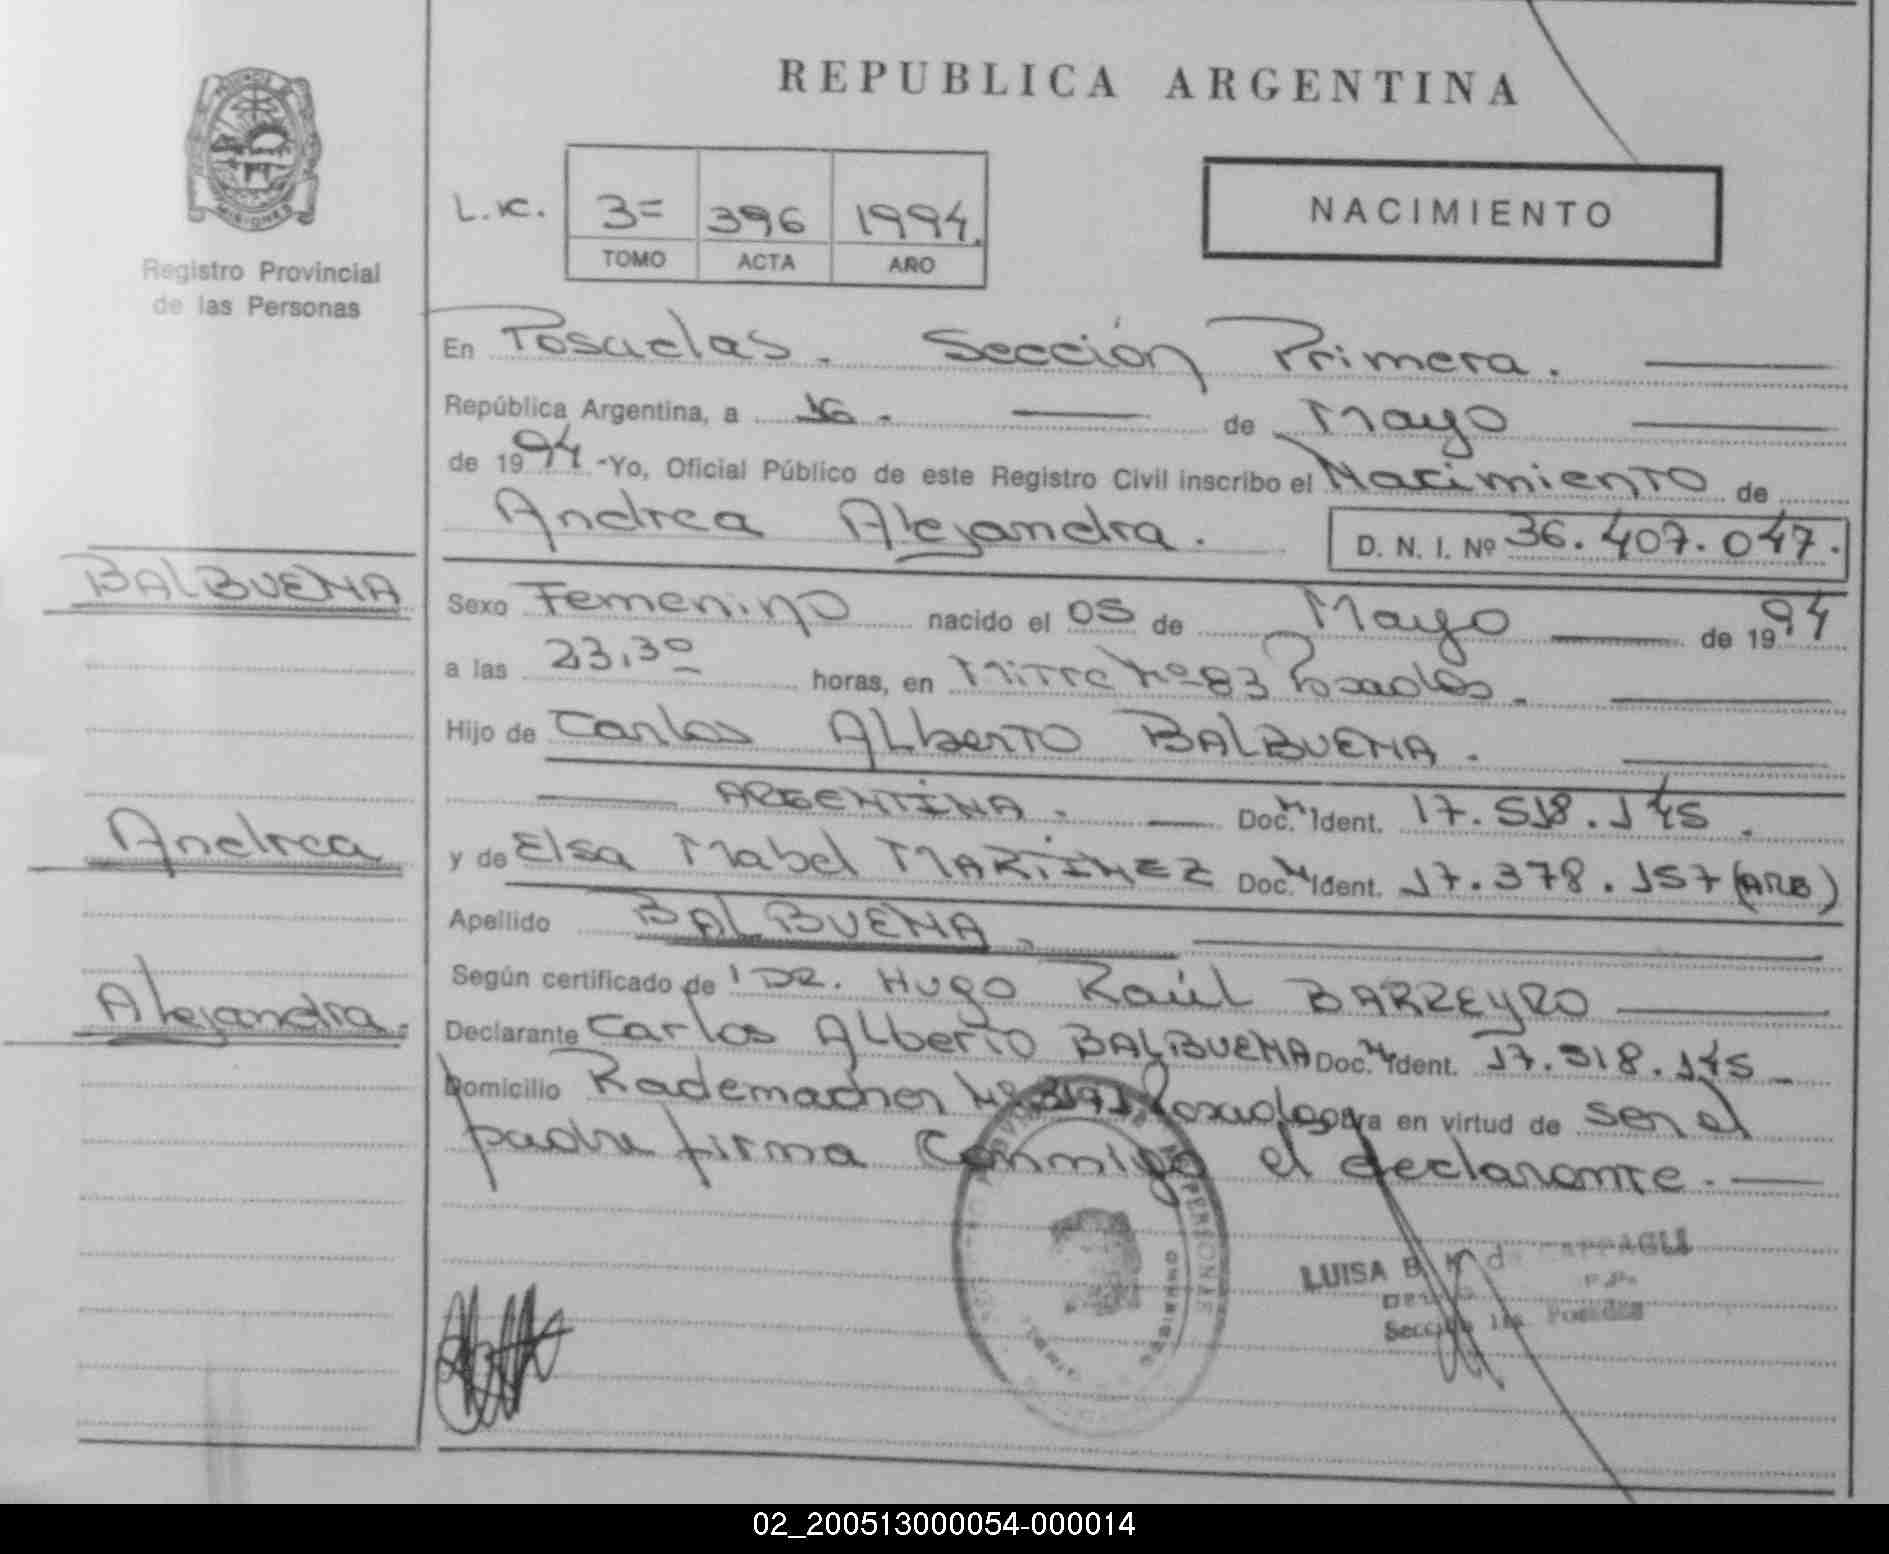 REPUBLICA ARGENTINA
MISIONES
Registro Provincial
de las Personas
L.c. 3= 396 1994.
TOMO ACTA AÑO
NACIMIENTO
En Posadas. Sección Primera.
República Argentina, a 16. de Mayo
de 1994 -Yo, Oficial Público de este Registro Civil inscribo el Nacimiento de
Andrea Alejandra. D. N. I. Nº 36.407.047.
BALBUENA
Sexo Femenino nacido el 05 de Mayo de 1994
a las 23,30 horas, en Mitre Nº 83 Posadas.
Hijo de Carlos Alberto BALBUENA.
ARGENTINA. Doc. Ident. 17.518.145.
Andrea
y de Elsa Mabel MARTINEZ Doc. Ident. 17.378.157 (ARG)
Apellido BALBUENA.
Según certificado de DR. Hugo Raúl BARREYRO
Alejandra.
Declarante Carlos Alberto BALBUENA Doc. Ident. 17.518.145
Domicilio Rademacher Nº Posadas en virtud de ser el
padre firma Conmigo el declarante.
LUISA B.
Sección 1ra. Posadas
02_200513000054-000014